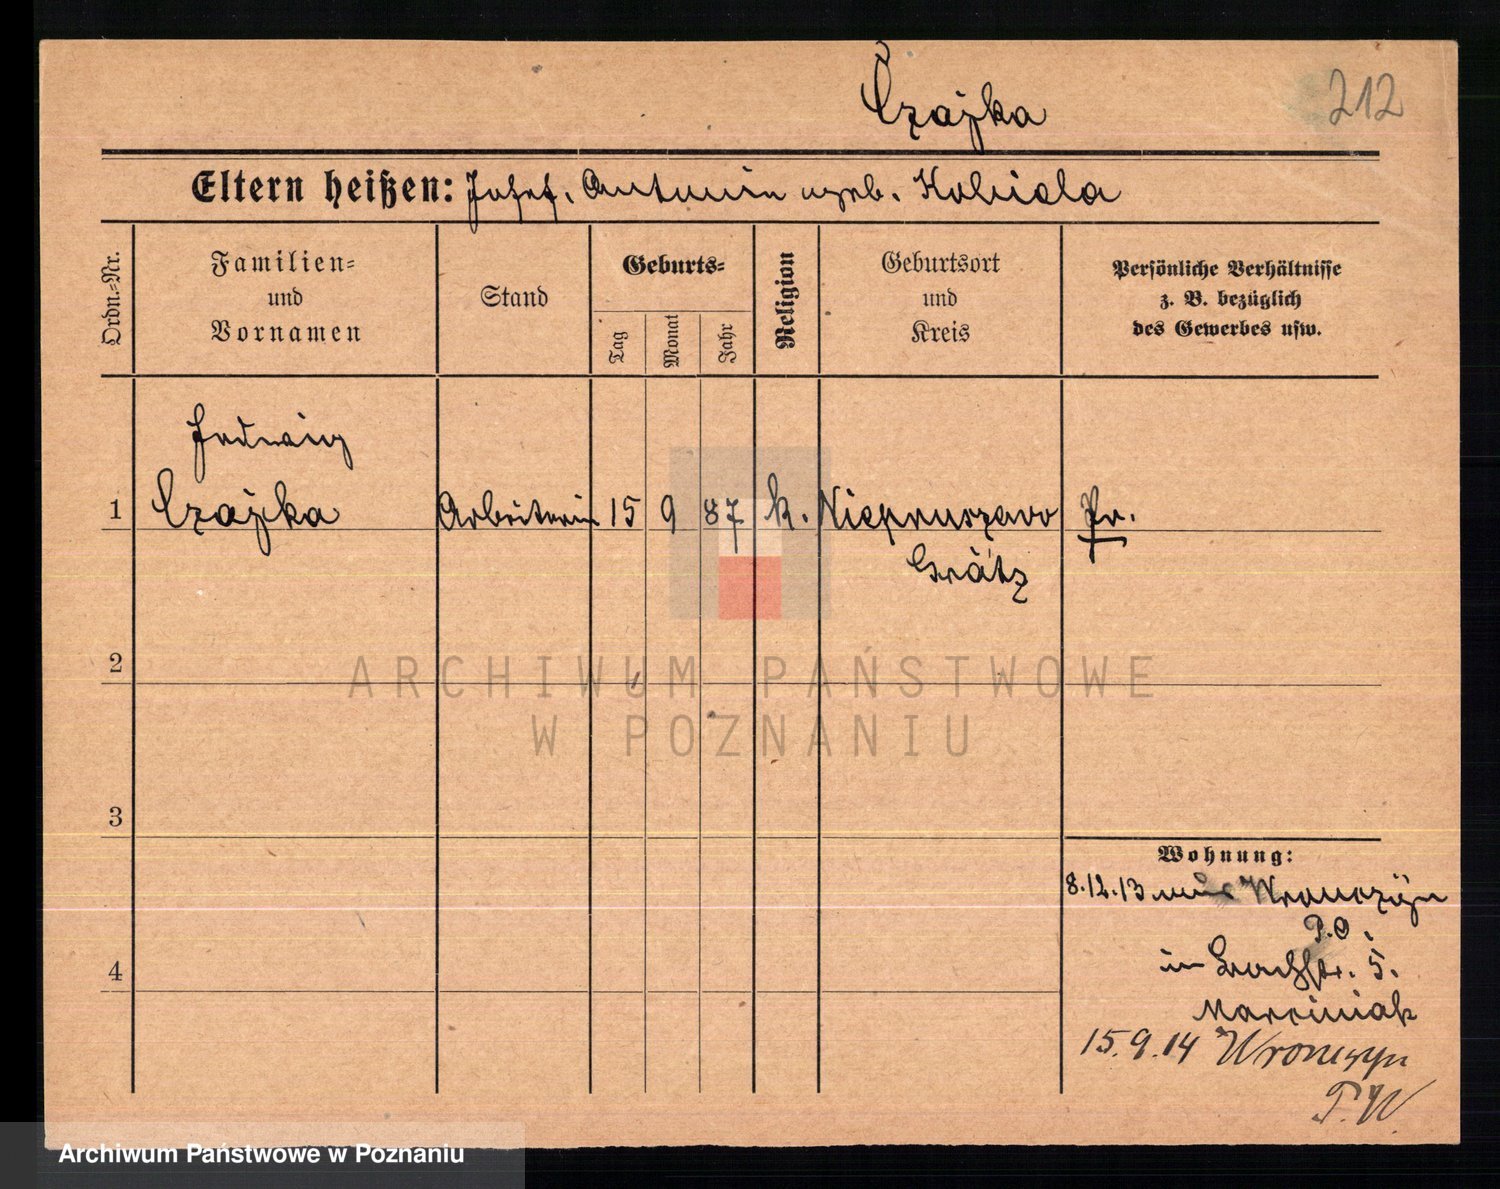 Czajka
212
Eltern heißen: Josef, Antonina geb. Kobiala
Ordn.-Nr.
Familien- und Vornamen
Stand
Geburts-
Tag
Monat
Jahr
Religion
Geburtsort und Kreis
Persönliche Verhältnisse z. B. bezüglich des Gewerbes usw.
Hedwig
1 Czajka Arbeiterin 15 9 87 k. Niepruszewo Pr.
Grätz
2
ARCHIWUM PAŃSTWOWE
W POZNANIU
3
Wohnung:
8.12.13 aus Wronczyn
P.O.
in Bachstr. 5.
4
Marciniak
15.9.14 Wronczyn
P.W.
Archiwum Państwowe w Poznaniu